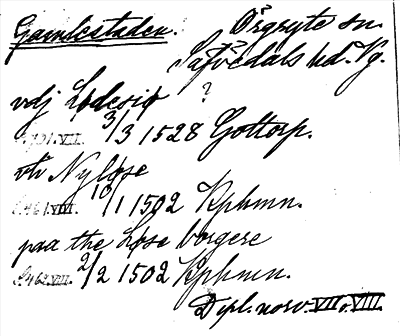 Gamlestaden. Örgryte sn.
Säfvedals hd. Vg.
vdj Lodesiø ?
VII. 3/3 1528 Gottorp.
vti Nyløse
S. 461. VIII. 10/1 1502 Kphmn.
paa the Løse borgere
S. 462. VIII. 2/2 1502 Kphmn.
Dipl. norv. VII o. VIII.